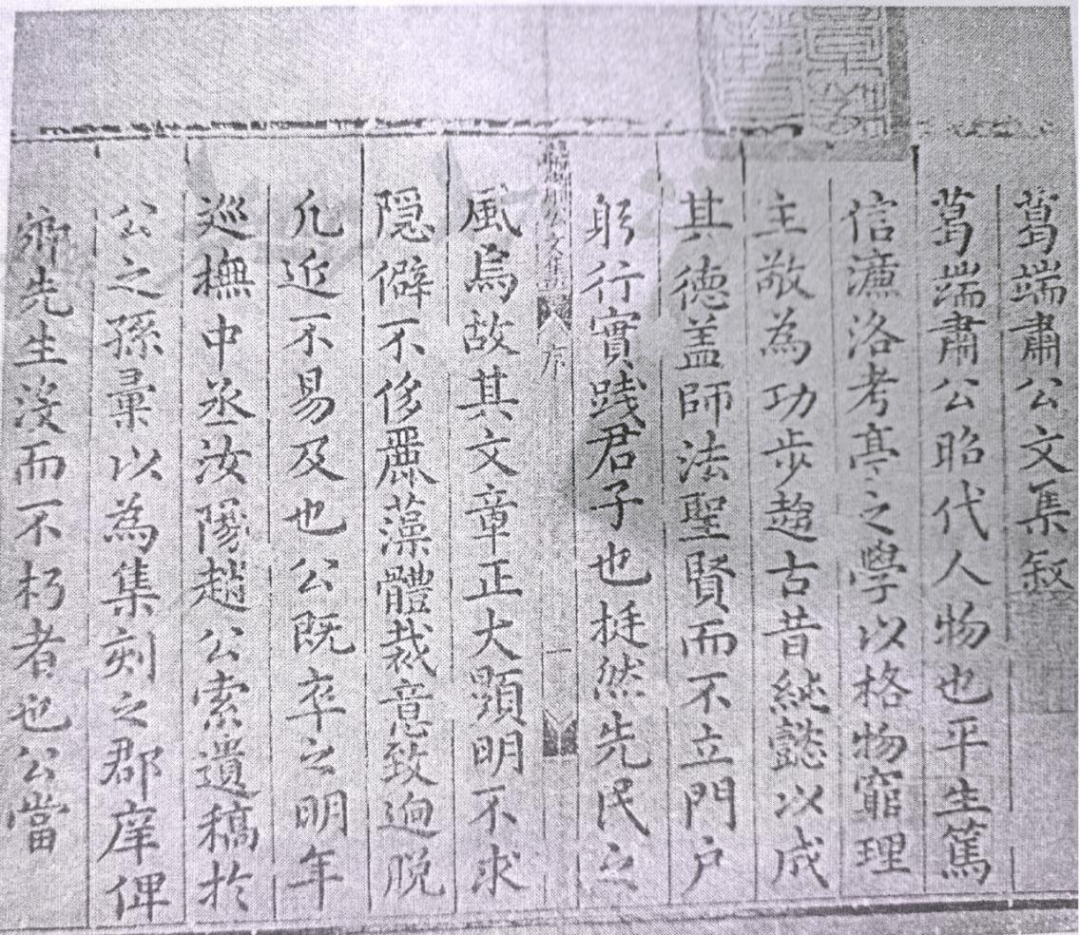 葛端肅公文集敘
葛端肅公昭代人物也平生篤
信濂洛考亭之學以格物窮理
主敬為功步趨古昔純懿以成
其德蓋師法聖賢而不立門户
躬行實踐君子也挺然先民之
葛端肅公文集 序 一
風焉故其文章正大顯明不求
隱僻不侈麗藻體裁意致迥脫
凡近不易及也公既卒之明年
巡撫中丞汝陽趙公索遺稿於
公之孫彙以為集刻之郡庠俾
鄉先生沒而不朽者也公當